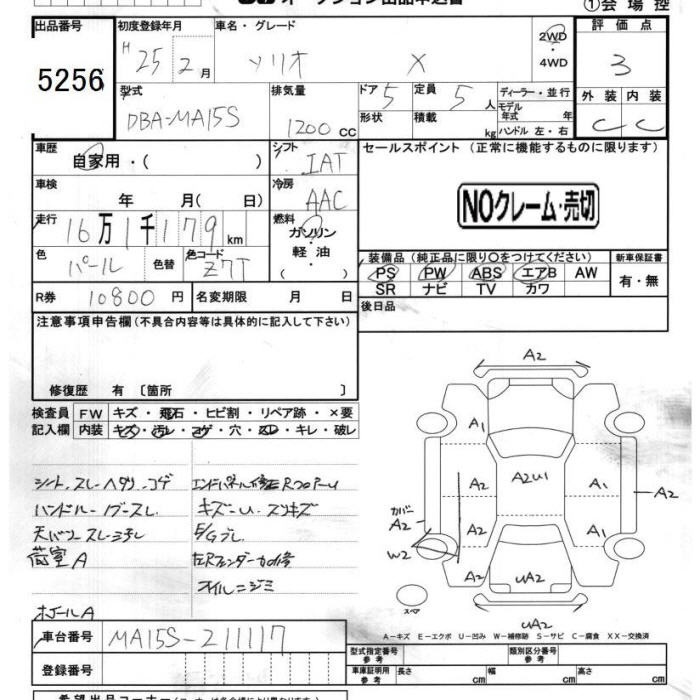 オークション出品申込書
①会場控
出品番号 初度登録年月 車名・グレード 2WD・4WD 評価点
5256 H 25 2月 ソリオ X 3
型式 排気量 ドア 5 定員 5人 ディーラー・並行 外装 内装
DBA-MA15S 1200 CC 形状 積載 kg モデル年式 年 C C
ハンドル 左・右
車歴 自家用・( ) シフト IAT セールスポイント(正常に機能するものに限ります)
車検 年 月( 日) 冷房 AAC NOクレーム・売切
走行 16万1千179km 燃料 ガソリン・軽油・( )
色 パール 色替 色コード Z7T 装備品(純正品に限り〇をつけてください) 新車保証書
PS PW ABS エアB AW 有・無
SR ナビ TV カワ
R券 10800円 名変期限 月 日 後日品
注意事項申告欄(不具合内容等は具体的に記入して下さい)
修復歴 有〔箇所 〕
検査員 FW キズ・飛石・ヒビ割・リペア跡・×要
記入欄 内装 キズ・汚レ・コゲ・穴・スレ・キレ・破レ
シート、スレ ヘタリ、コゲ
ハンドル
天バリ
荷室A
ホイールA
キズ
E/G
オイルニジミ
A2
A1
A2
A2
A2
A2U1
A1
A1
A2
カバー
A2
W2
UA2
スペア
UA2
A-キズ E-エクボ U-凹み W-補修跡 S-サビ C-腐食 XX-交換済
車台番号 MA15S-211117
登録番号
型式指定番号 参考 類別区分番号 参考
車庫証明用 参考 長さ cm 幅 cm 高さ cm